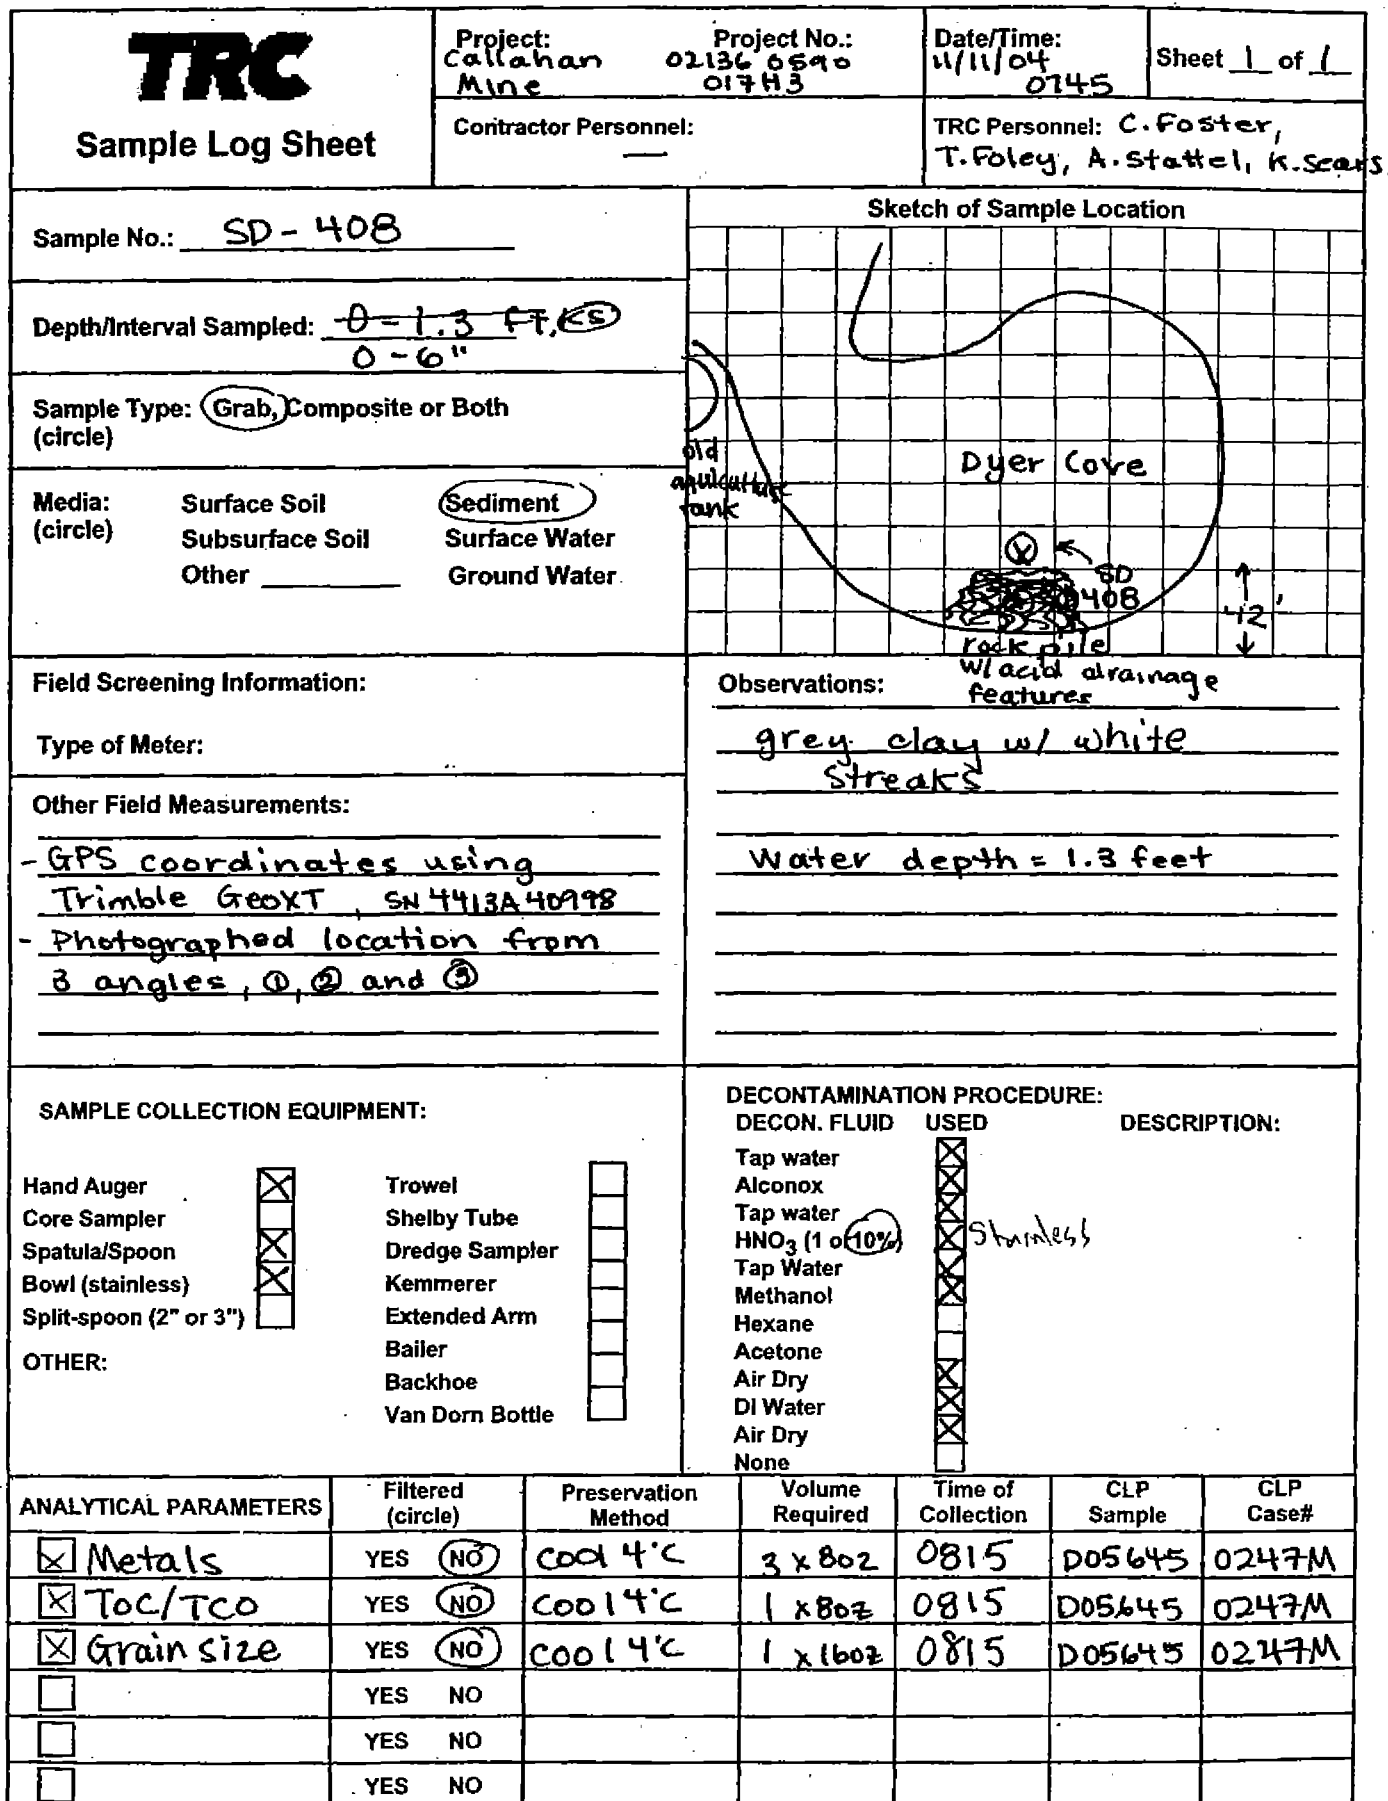 TRC
Sample Log Sheet
Project: Project No.:
Callahan 02136 0590
Mine 017H3
Date/Time:
11/11/04
0745
Sheet 1 of 1
Contractor Personnel:
—
TRC Personnel: C. Foster,
T. Foley, A. Stattel, K. Sears
Sample No.: SD-408
Depth/Interval Sampled: 0-1.3 FT, KS
0-6"
Sample Type: Grab, Composite or Both
(circle)
Media: Surface Soil Sediment
(circle) Subsurface Soil Surface Water
Other Ground Water
Sketch of Sample Location
old
aquiculture
tank
Dyer Cove
X
SD
408
42'
rock pile
w/ acid drainage
features
Field Screening Information:
Type of Meter:
Other Field Measurements:
- GPS coordinates using
Trimble GeoXT, SN 4413A40998
- Photographed location from
3 angles, ①, ② and ③
Observations:
grey clay w/ white
streaks
Water depth = 1.3 feet
SAMPLE COLLECTION EQUIPMENT:
Hand Auger
Core Sampler
Spatula/Spoon
Bowl (stainless)
Split-spoon (2" or 3")
OTHER:
Trowel
Shelby Tube
Dredge Sampler
Kemmerer
Extended Arm
Bailer
Backhoe
Van Dorn Bottle
DECONTAMINATION PROCEDURE:
DECON. FLUID USED DESCRIPTION:
Tap water
Alconox
Tap water
HNO3 (1 or 10%) Stainless
Tap Water
Methanol
Hexane
Acetone
Air Dry
DI Water
Air Dry
None
ANALYTICAL PARAMETERS Filtered (circle) Preservation Method Volume Required Time of Collection CLP Sample CLP Case#
Metals YES NO Cool 4°C 3 x 8oz 0815 D05645 0247M
TOC/TCO YES NO Cool 4°C 1 x 8oz 0815 D05645 0247M
Grain size YES NO Cool 4°C 1 x 16oz 0815 D05645 0247M
YES NO
YES NO
YES NO